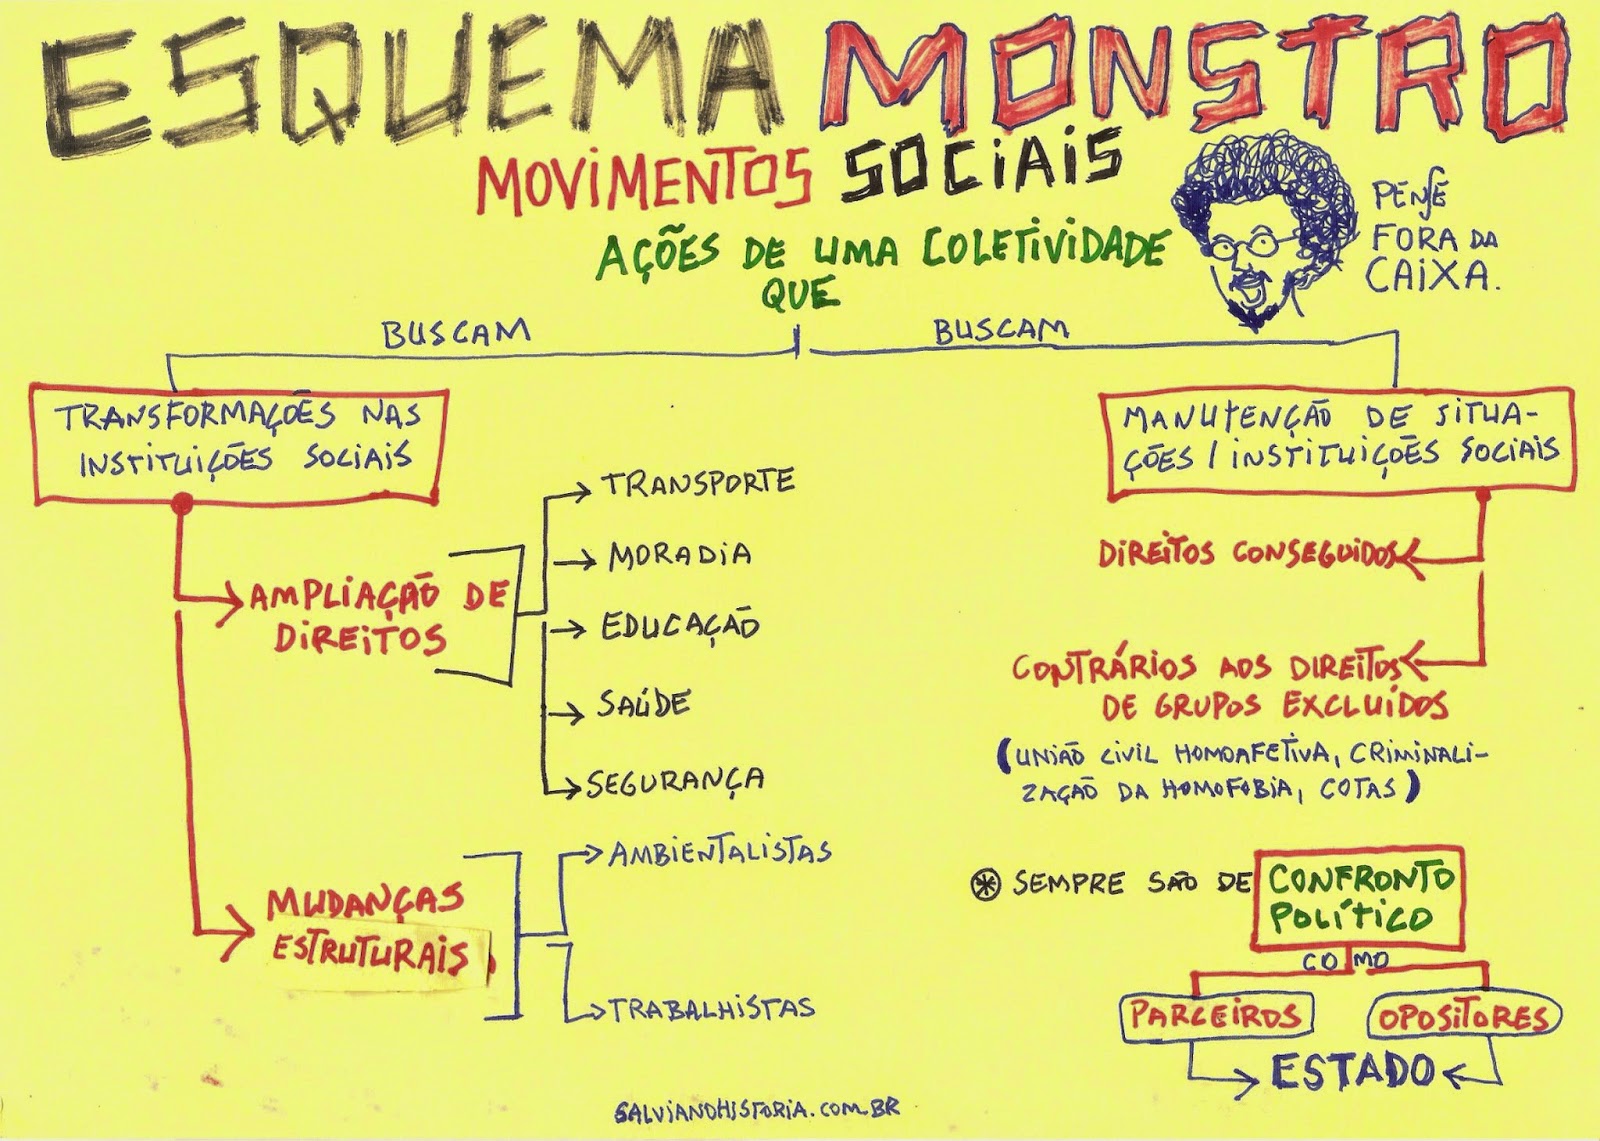 ESQUEMA MONSTRO
MOVIMENTOS SOCIAIS
AÇÕES DE UMA COLETIVIDADE
QUE
PENSE
FORA DA
CAIXA.
BUSCAM
BUSCAM
TRANSFORMAÇÕES NAS
INSTITUIÇÕES SOCIAIS
AMPLIAÇÃO DE
DIREITOS
TRANSPORTE
MORADIA
EDUCAÇÃO
SAÚDE
SEGURANÇA
MUDANÇAS
ESTRUTURAIS
AMBIENTALISTAS
TRABALHISTAS
MANUTENÇÃO DE SITUA-
ÇÕES / INSTITUIÇÕES SOCIAIS
DIREITOS CONSEGUIDOS
CONTRÁRIOS AOS DIREITOS
DE GRUPOS EXCLUÍDOS
(UNIÃO CIVIL HOMOAFETIVA, CRIMINALI-
ZAÇÃO DA HOMOFOBIA, COTAS)
* SEMPRE SÃO DE CONFRONTO
POLÍTICO
COMO
PARCEIROS OPOSITORES
ESTADO
SALVIANOHISTORIA.COM.BR